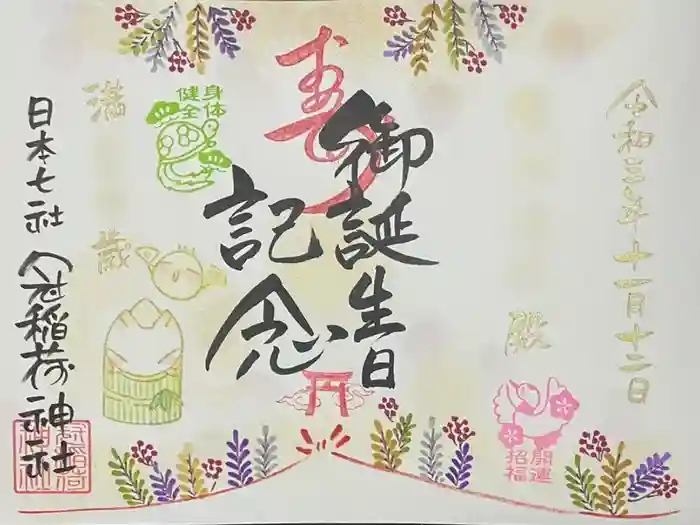 令和三年十一月十二日
殿
御誕生日
記念
寿
身体
健全
満
歳
開運
招福
日本七社 冠稲荷神社